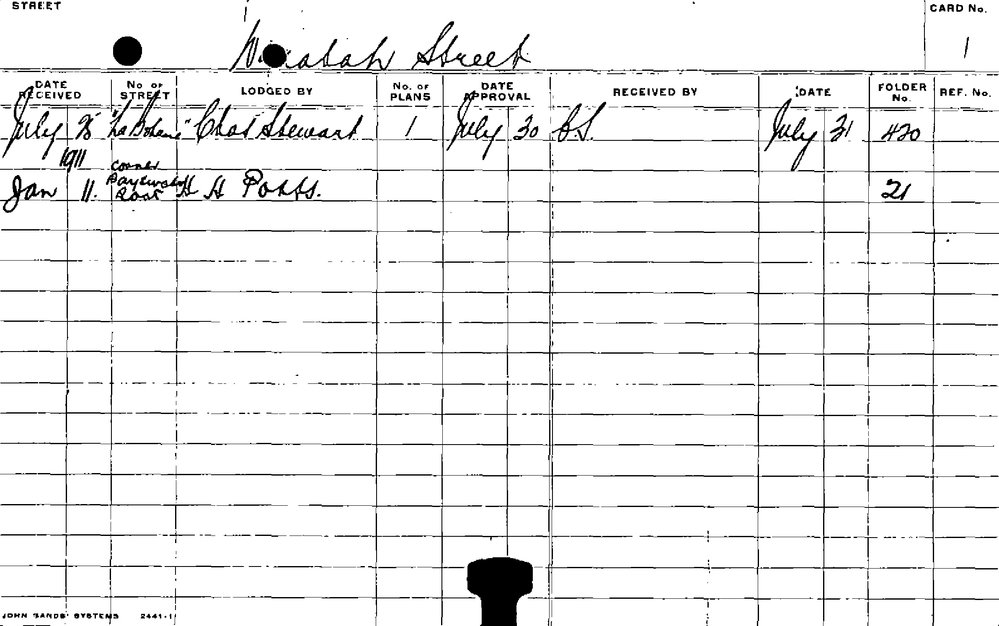 STREET
CARD No.
Street
1
DATE RECEIVED No. OF STREET LODGED BY No. OF PLANS DATE APPROVAL RECEIVED BY DATE FOLDER No. REF. No.
July 25 "La Boheme" Chas Stewart 1 July 30 C.S. July 31 420
1911
corner
Jan 11. Road H H Potts. 21
JOHN SANDS' SYSTEMS 2441-1